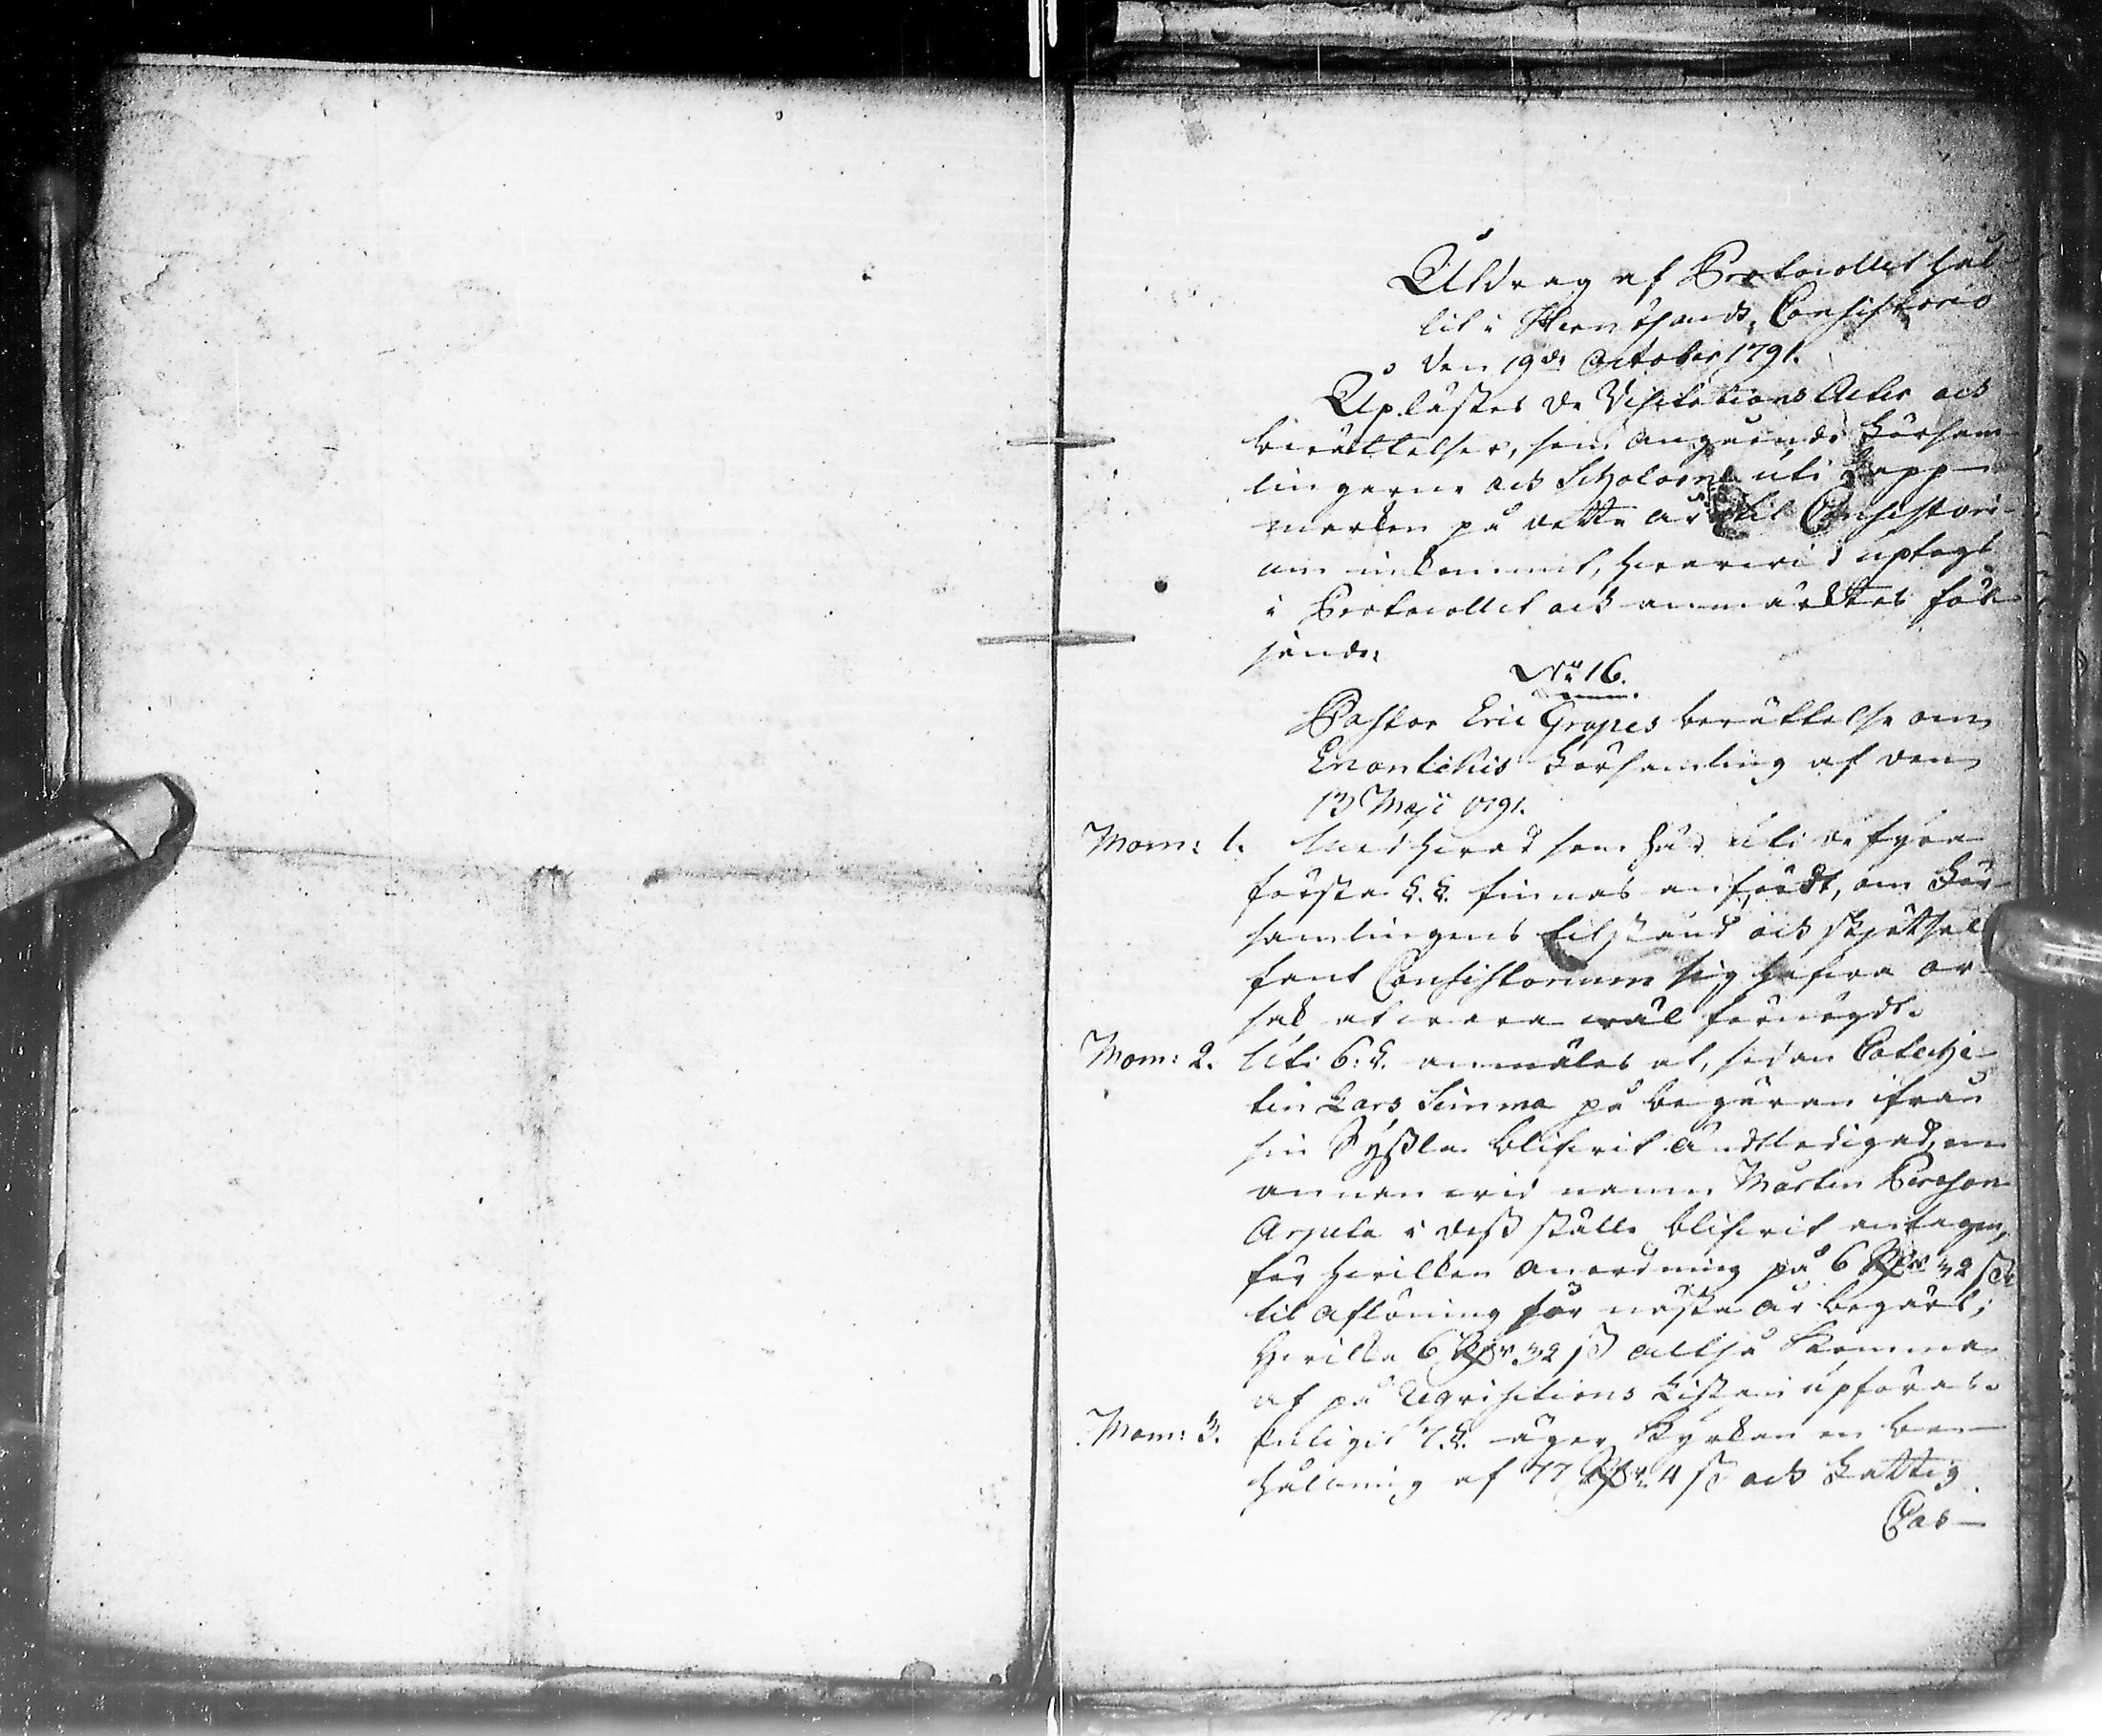 Utdrag af Protocollet hål-
lit i Hernösands Consistorio
den 19de October 1791.
Uplästes de Visitations Acter och
berättelser, som angående Försam-
lingarne och Scholorne uti Lapp-
marken på detta år til Consistori-
um inkommit, hvarvid uptogs
i Protocollet och anmärktes föl-
jande:
No 16.
Pastor Eric Grapes berättelse om
Enontekis Församling af den
13 Maji 1791.
Mom: 1. Med hvad som här uti de fyra
första §.§. finnas anfördt, om För-
samlingens tilstånd och skjötsel
fant Consistorium sig hafva or-
sak at vara väl förnögdt.
Mom: 2. Uti 6. §. anmäles at, sedan Cateche-
ten Lars Simma på begäran ifrån
sin Syssla blifvit entledigad, en
annan vid namn Mårten Persson
Arpela i dess ställe blifvit antagen,
för hvilken anordning på 6 Rdr 32 sk
til aflöning för nästa år begärts;
Hvilka 6 Rdr 32 sk altså komma
at på Reqvisitions Listan upföras.
Mom: 3. Enligit 7. §. äger Kyrkan en be-
hållning af 77 Rdr 4 sk och Fattig
Cas-